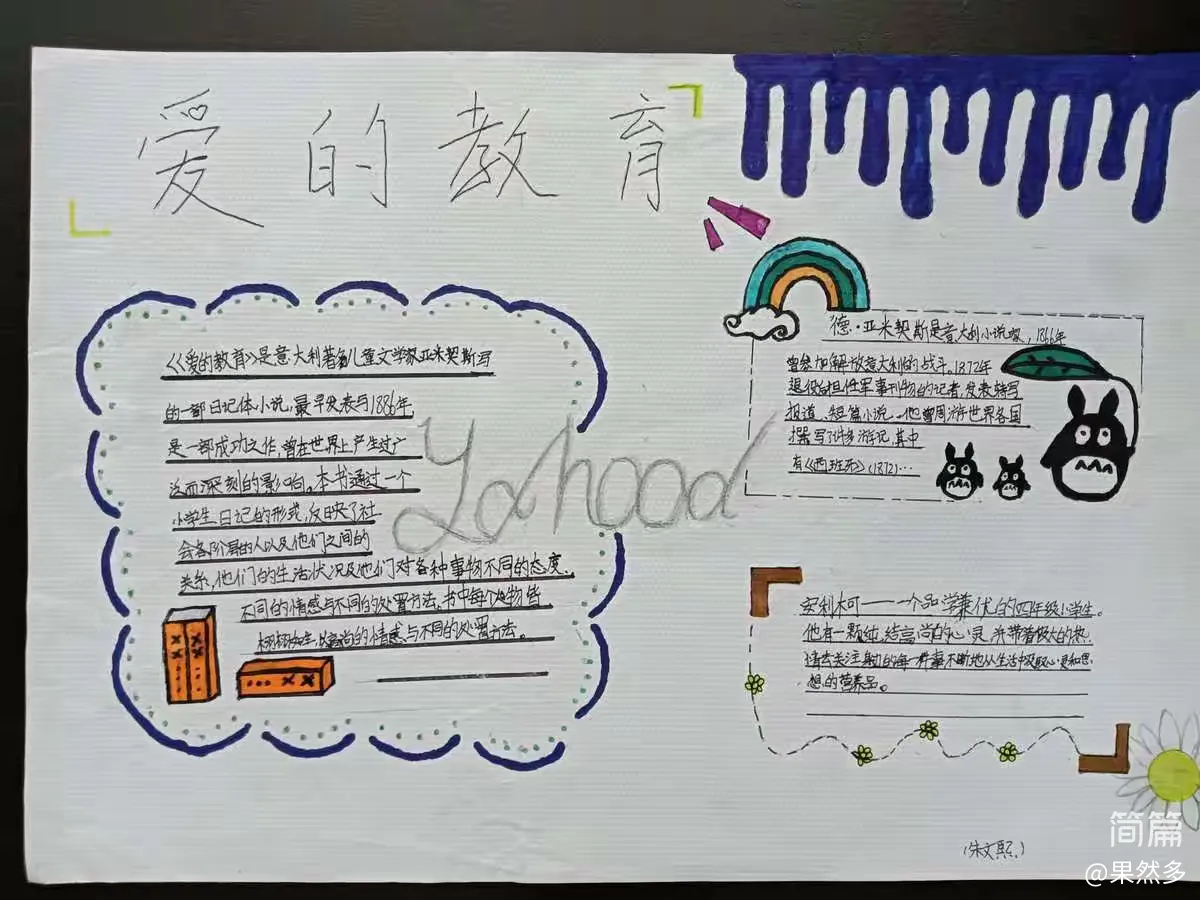 爱的教育
《爱的教育》是意大利著名儿童文学家亚米契斯写
的一部日记体小说,最早发表与1886年
是一部成功之作,曾在世界上产生过广
泛而深刻的影响。本书通过一个
小学生日记的形式,反映了社
会各阶层的人以及他们之间的
关系,他们的生活状况及他们对各种事物不同的态度.
不同的情感与不同的处置方法。书中每个人物皆
栩栩如生,以高尚的情感与不同的处置方法。
德·亚米契斯是意大利小说家,1866年
曾参加解放意大利的战斗。1872年
退役后担任军事刊物的记者,发表特写
报道、短篇小说。他曾周游世界各国
撰写了许多游记,其中
有《西班牙》(1872)…
安利柯——一个品学兼优的四年级小学生。
他有一颗纯洁高尚的心灵,并带着极大的热
情去关注身边的每一件事不断地从生活中汲取心灵和思
想的营养品。
(朱文熙)
简篇
@果然多